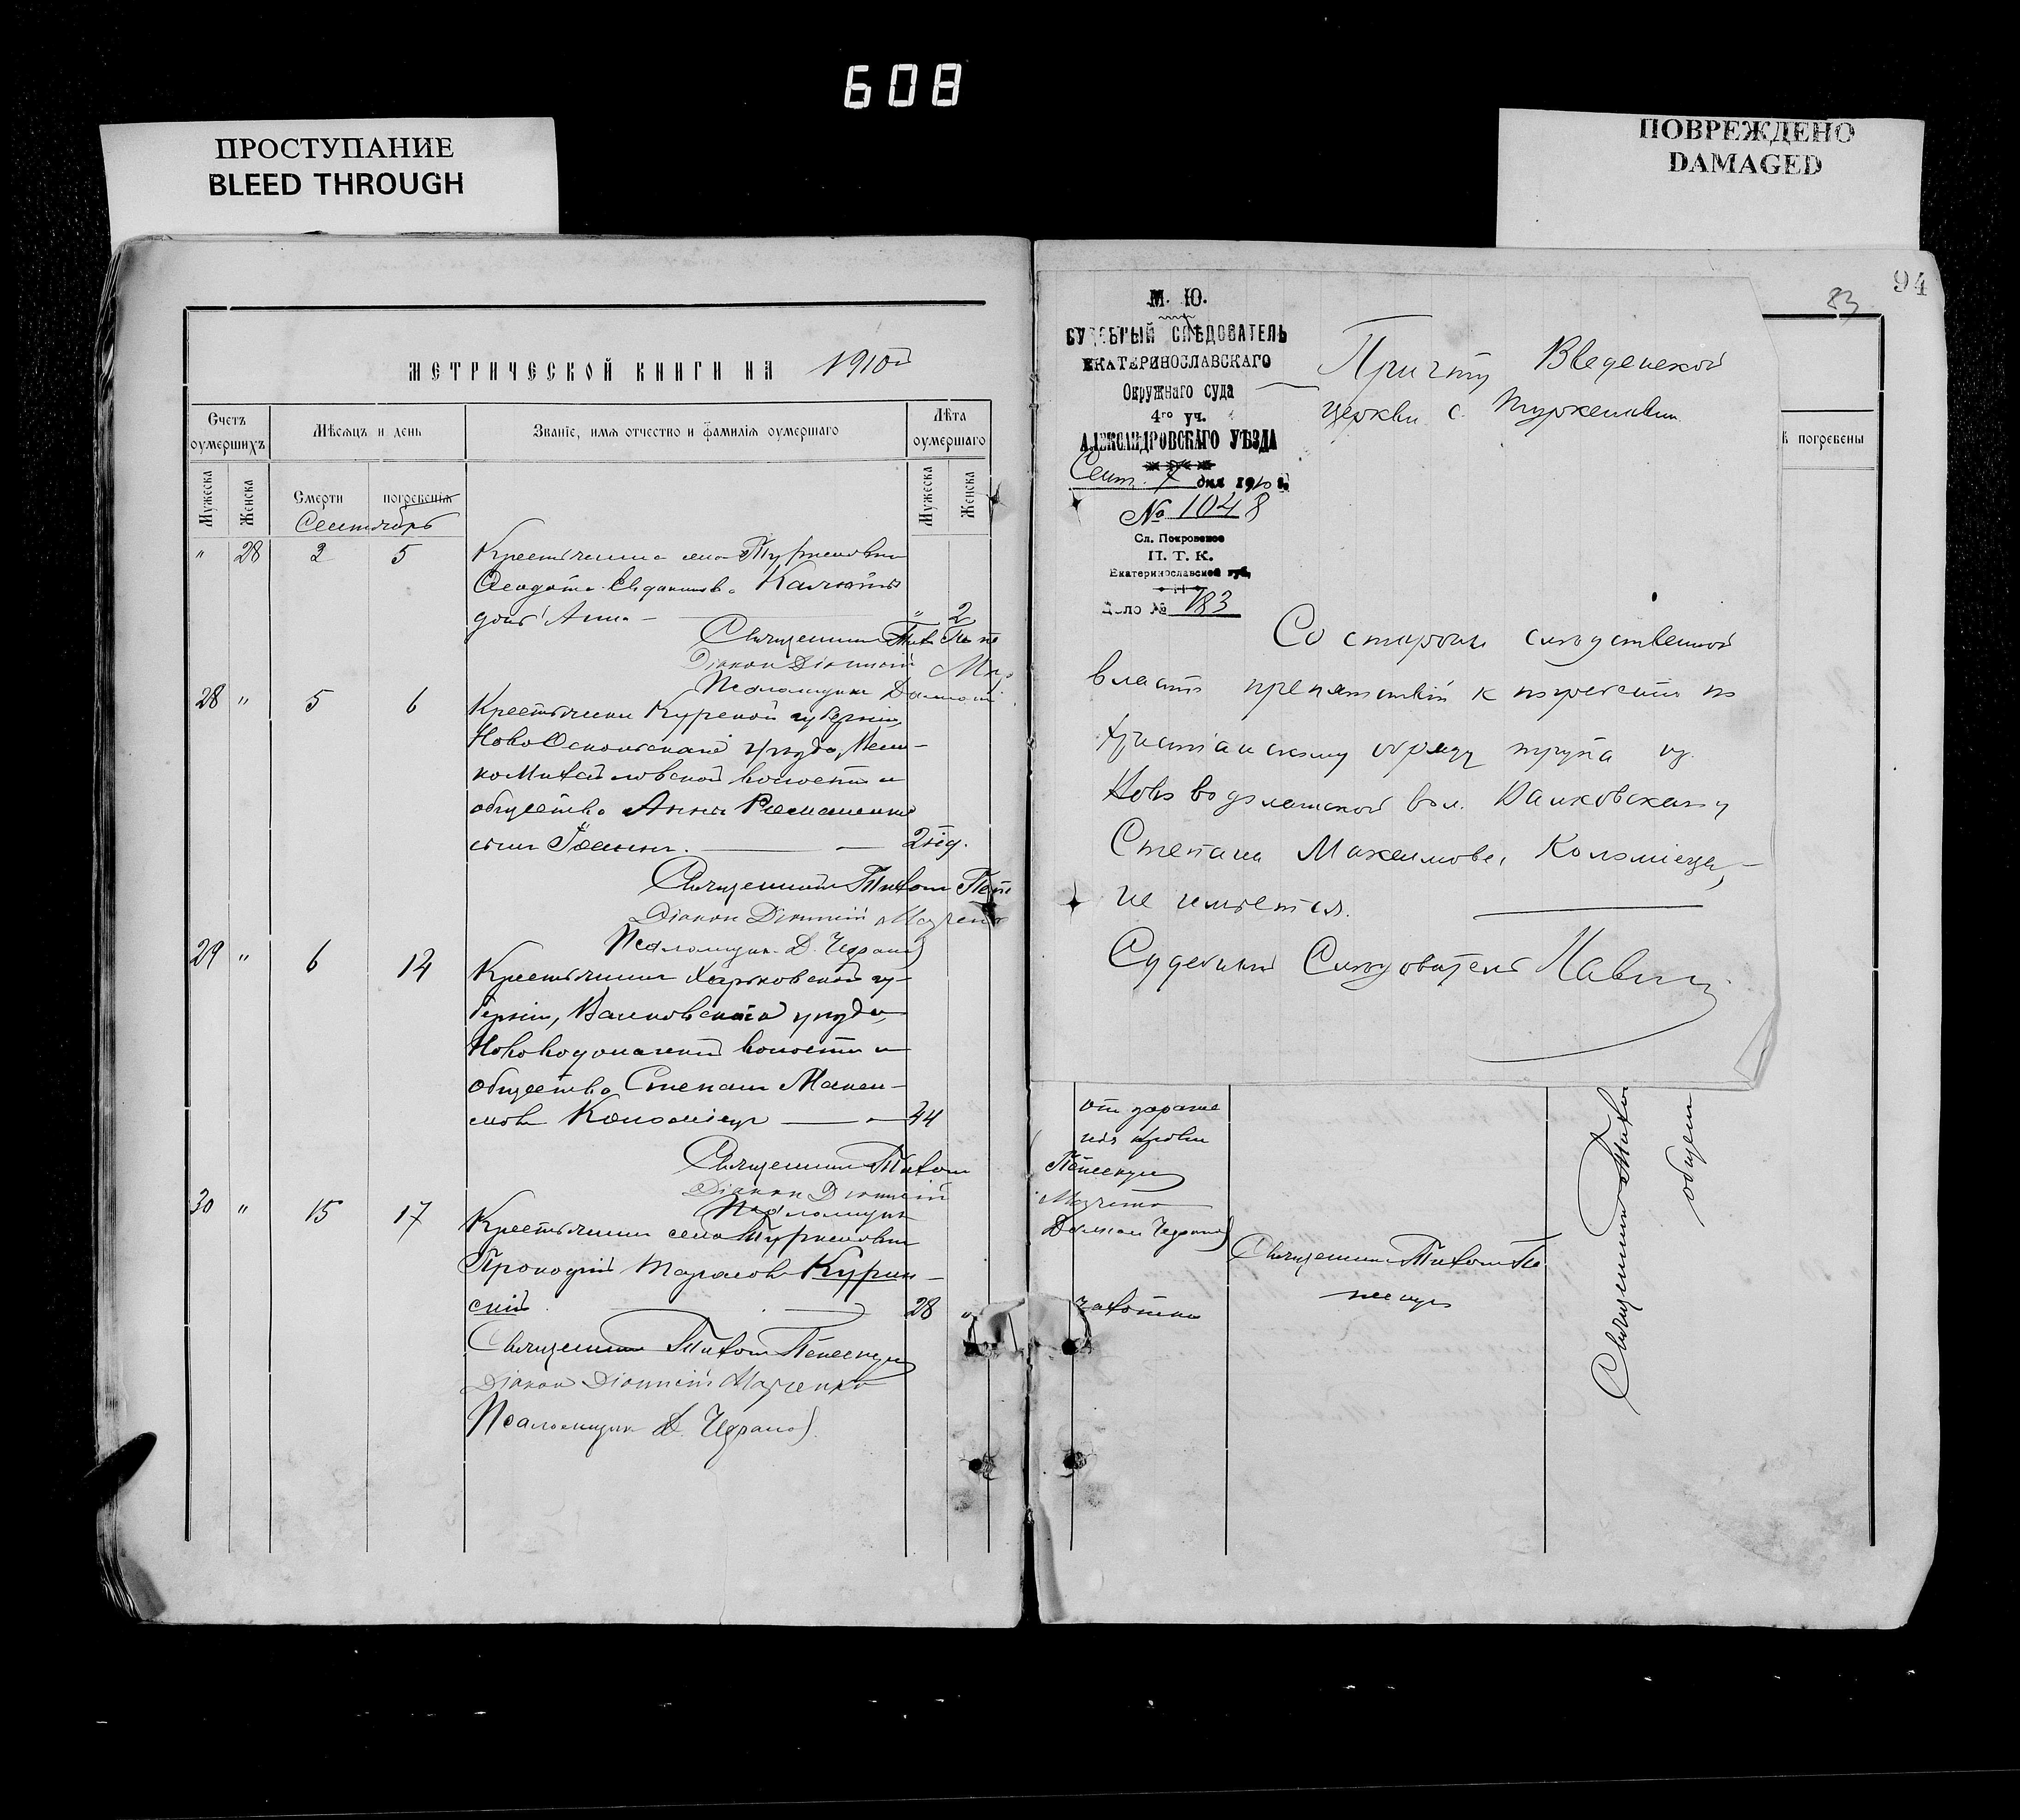 608
ПРОСТУПАНИЕ
BLEED THROUGH
ПОВРЕЖДЕНО
DAMAGED
94
83
МЕТРИЧЕСКОЙ КНИГИ НА 1910й
Счетъ оумершихъ
Мѣсяцъ и день
Званіе, имя отчество и фамилія оумершаго
Лѣта оумершаго
Мужеска
Женска
Смерти
погребенія
Мужеска
Женска
Сентябрь
" 28 2 5 Крестьянина села Туркеновки
Калюжны
дочь Анна — " 2
Священникъ
Діаконъ Діонисій
Псаломщикъ Даміанъ
28 " 5 6 Крестьянки Курской губерніи,
Ново Оскольскаго уѣзда,
Михайловской волости и
общества Анны
сынъ Іоаннъ. — 2 нед.
Священникъ Тихонъ
Діаконъ Діонисій Марченко
Псаломщикъ Д.
29 " 6 12 Крестьянинъ Харьковской гу-
берніи, Валковскаго уѣзда,
Нововодолажской волости и
общества Стефанъ Макси-
мовъ Коломіецъ — 44
Священникъ Тихонъ
Діаконъ Діонисій
Псаломщикъ
30 " 15 17 Крестьянинъ села Туркеновки
Прокофій Тарасовъ Курин-
скій 28 "
Священникъ Тихонъ
Діаконъ Діонисій Марченко
Псаломщикъ Д.
М. Ю.
СУДЕБНЫЙ СЛѢДОВАТЕЛЬ
ЕКАТЕРИНОСЛАВСКАГО
Окружнаго суда
4го уч.
АЛЕКСАНДРОВСКАГО УѢЗДА
Сент. 7 дня 1910 г.
№ 1048
Сл. Покровское
П. Т. К.
Екатеринославской губ.
Дѣло № 183
Причту Введенской
церкви с. Туркеновки
Со стороны слѣдственной
власти препятствій къ погребенію по
христіанскому обряду трупа кр.
Ново водолажской вол. Валковскаго у
Стефана Максимова Коломіеца,
не имѣется.
Судебный Слѣдователь
погребены
отъ зараже
нія крови
Марченко
Даміанъ
чахотки
Священникъ Тихонъ
Священникъ Тихонъ
общем